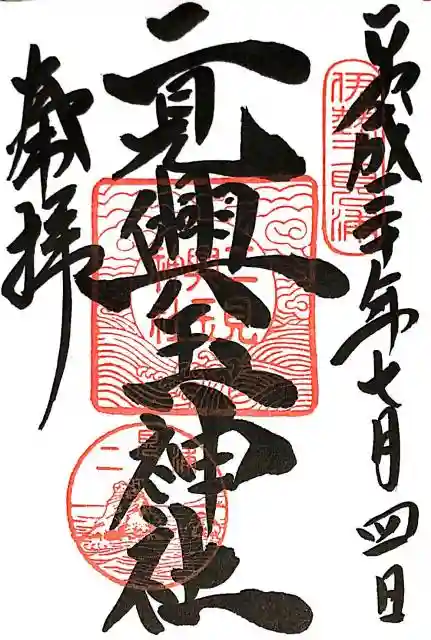 平成三十年七月四日
伊勢二見浦
二見興玉神社
二見興玉神社
二見浦
奉拝